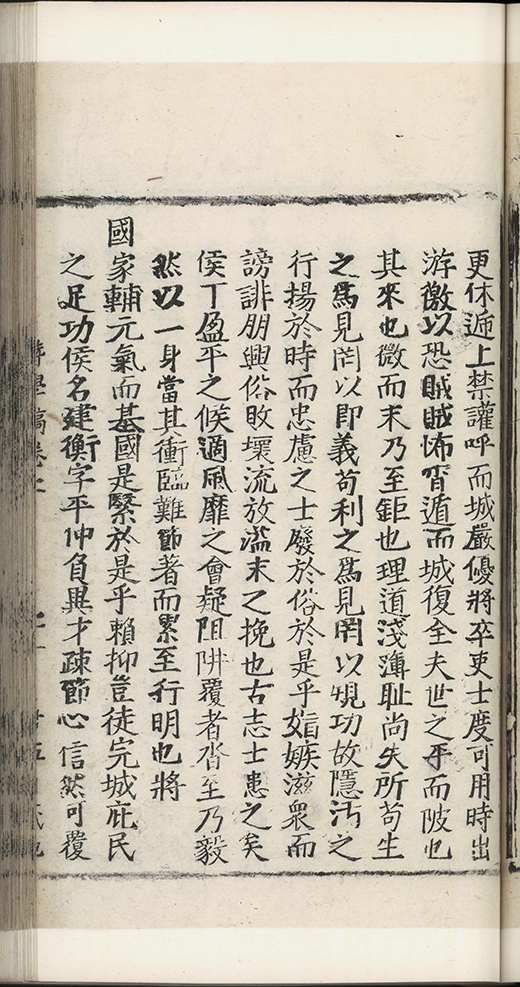 更休遁上禁讙呼而城嚴優將卒吏士度可用時出
游徼以恐賊賊怖宵遁而城復全夫世之平而陂也
其來也微而末乃至鉅也理道淺薄耻尚失所苟生
之爲見罔以即義苟利之爲見罔以規功故隱汚之
行揚於時而忠慮之士廢於俗於是乎媢嫉滋衆而
謗誹朋興俗敗壞流放溢末之挽也古志士患之矣
侯丁盈平之候適風靡之會疑阻阱覆者沓至乃毅
然以一身當其衝臨難節著而累至行明也將
國家輔元氣而基國是繄於是乎賴抑豈徒完城庇民
之足功侯名建衡字平仲負異才疎節心信然可覆